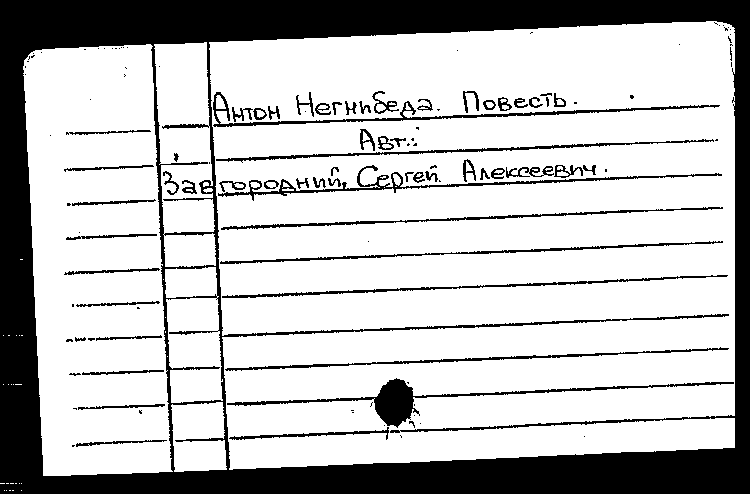 Антон Негнибеда. Повесть.
Авт.:
Завгородний, Сергей Алексеевич.